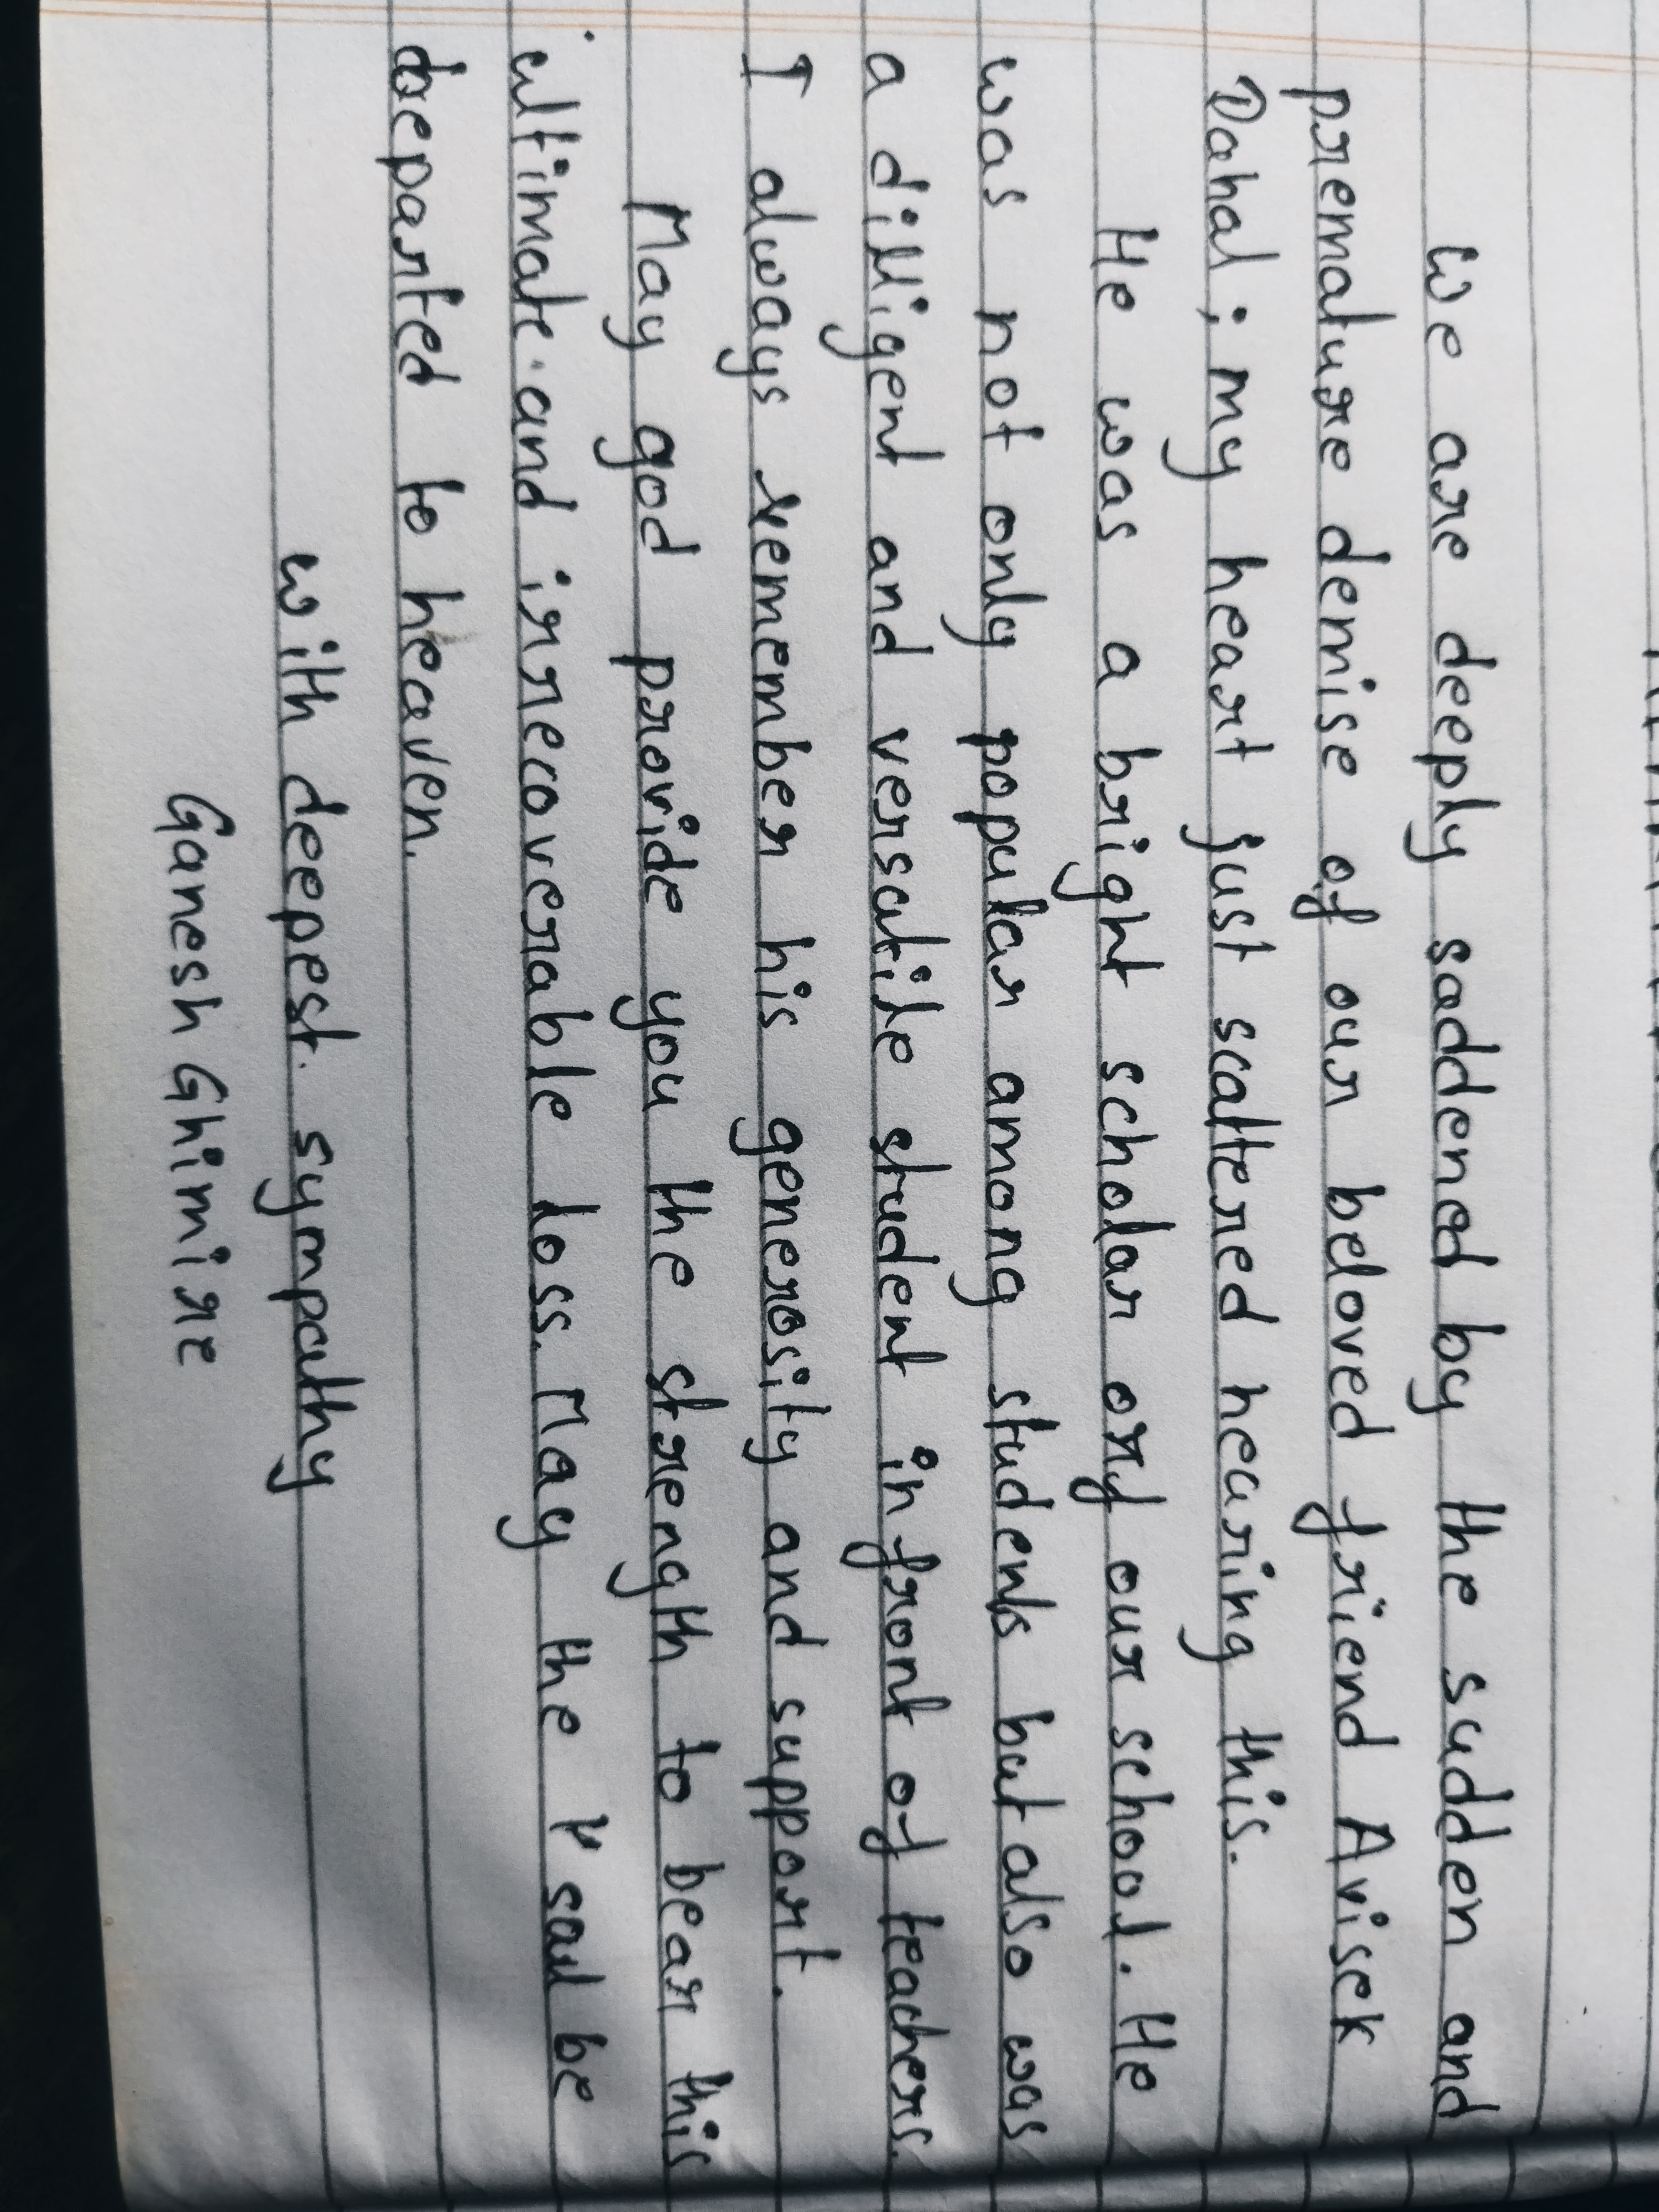 We are deeply saddened by the sudden and
premature demise of our beloved friend Avisek
Dahal; my heart just scattered hearing this.
He was a bright scholar orf our school. He
was not only popular among students but also was
a dilligent and versatile student in front of teachers.
I always remember his generosity and support.
May god provide you the strength to bear this
ultimate and irrecoverable loss. May the soul be
departed to heaven.
with deepest sympathy
Ganesh Ghimire